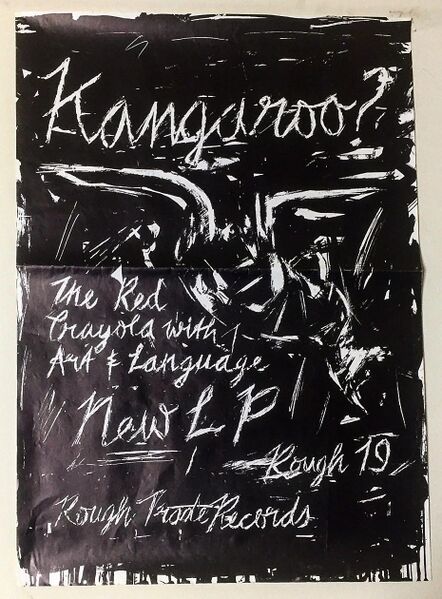 Kangaroo?
The Red
Crayola with
Art & Language
New LP
Rough 19
Rough Trade Records